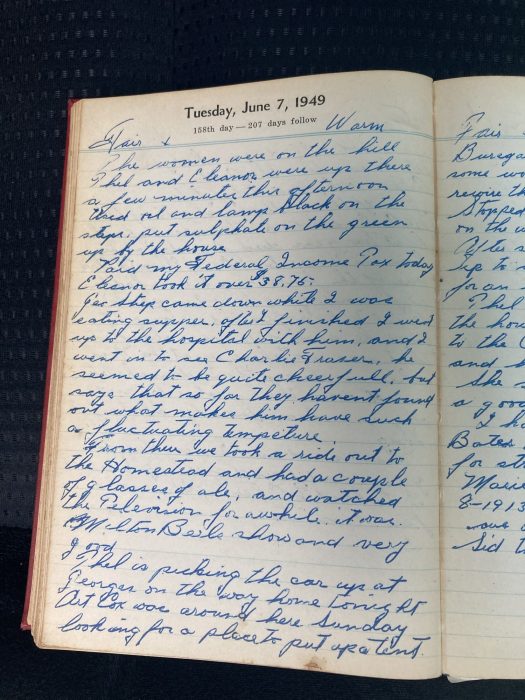 Tuesday, June 7, 1949
158th day — 207 days follow
Fair & Warm
The women were on the hill
Phel and Eleanor were up there
a few minutes this afternoon
Used oil and lamp black on the
steps, put sulphate on the green
up by the house
Paid my Federal Income Tax today
Eleanor took it over $38.75.
Geo Shep came down while I was
eating supper, after I finished I went
up to the hospital with him, and I
went in to see Charlie Fraser, he
seemed to be quite cheerfull, but
says that so far they havent found
out what makes him have such
a fluctuating tempeture
From there we took a ride out to
the Homestead and had a couple
of glasses of ale, and watched
the Television for awhile. it was
Milton Berle show and very
good
Phel is picking the car up at
Georges on the way home tonight
Art Cox was around here Sunday
looking for a place to put up a tent.
Fair
some wo
require th
Stopped
on the w
After s
up to
for an
Phel
the hou
to the C
and h
She
a good
I ha
Bates
for st
Marie
8-1913
Sid t